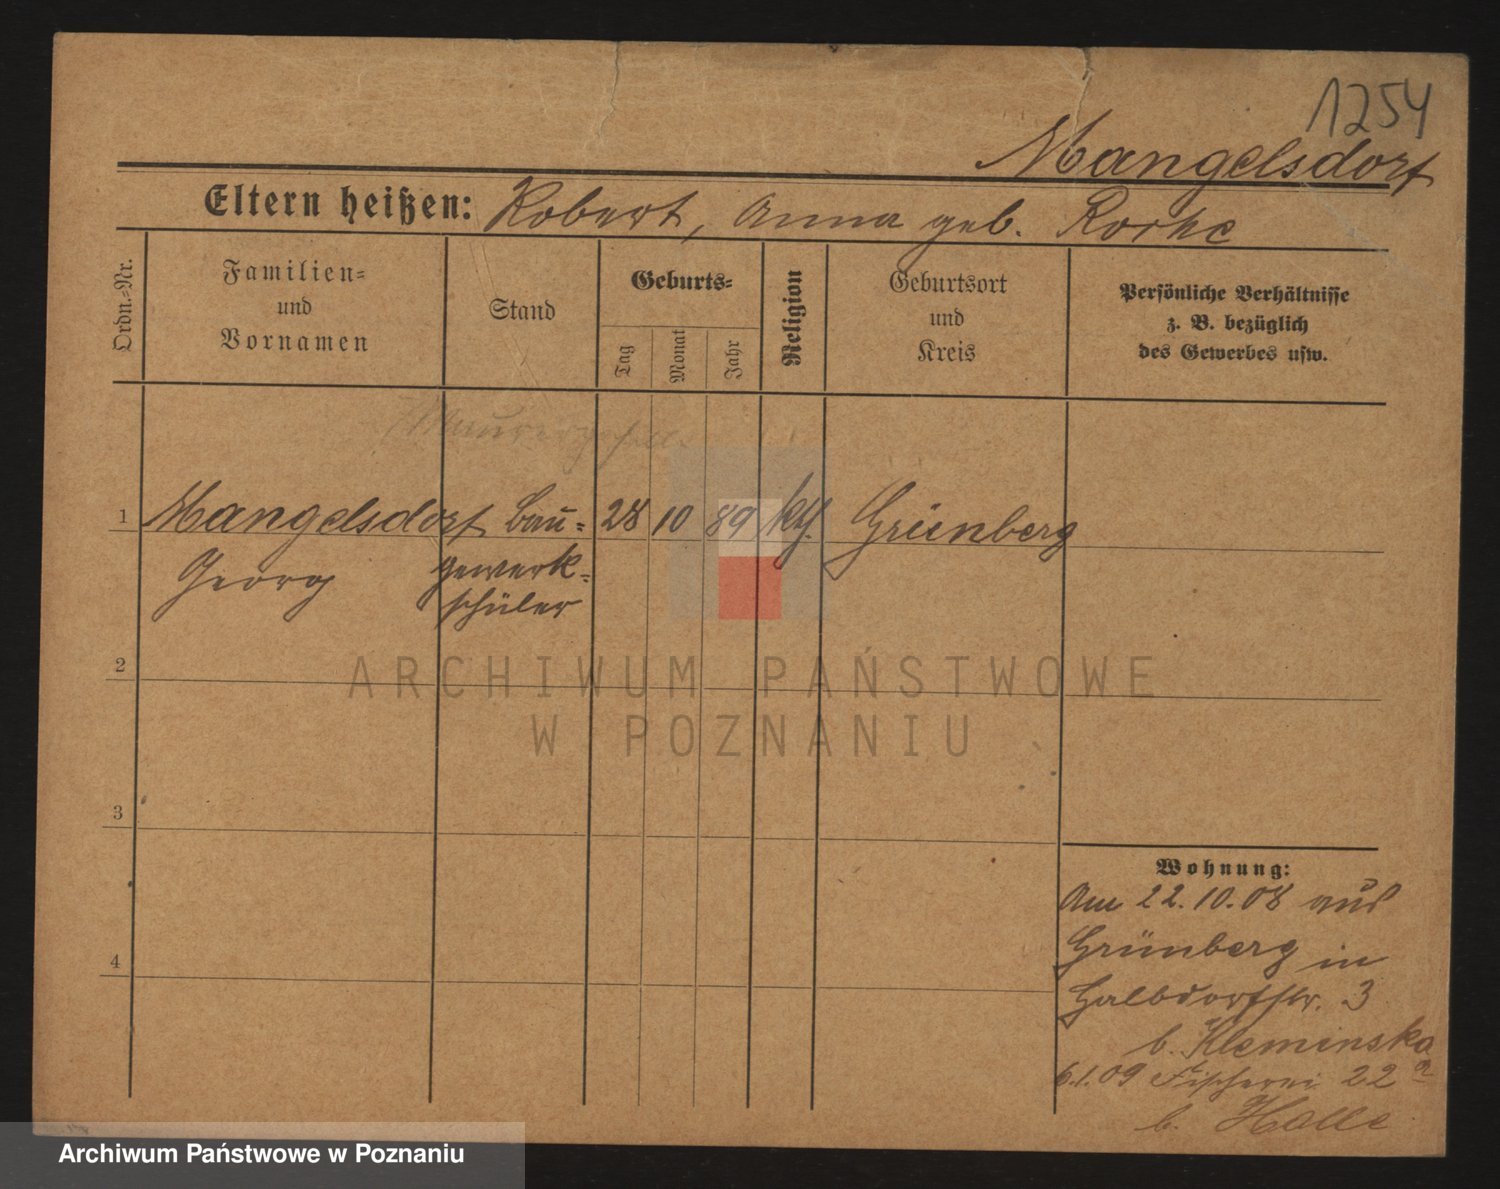 1254
Mangelsdorf
Eltern heißen: Robert, Anna geb.
Ordn.-Nr.
Familien-
und
Vornamen
Stand
Geburts-
Tag
Monat
Jahr
Religion
Geburtsort
und
Kreis
Persönliche Verhältnisse
z. B. bezüglich
des Gewerbes usw.
1 Mangelsdorf Bau- 28 10 89 Grünberg
Georg gewerk-
schüler
2
3
4
Wohnung:
Am 22.10.08 aus
Grünberg in
Halbdorfstr. 3
b. Kleminska
6.1.09 Fischerei 22a
b. Halle
ARCHIWUM PAŃSTWOWE
W POZNANIU
Archiwum Państwowe w Poznaniu